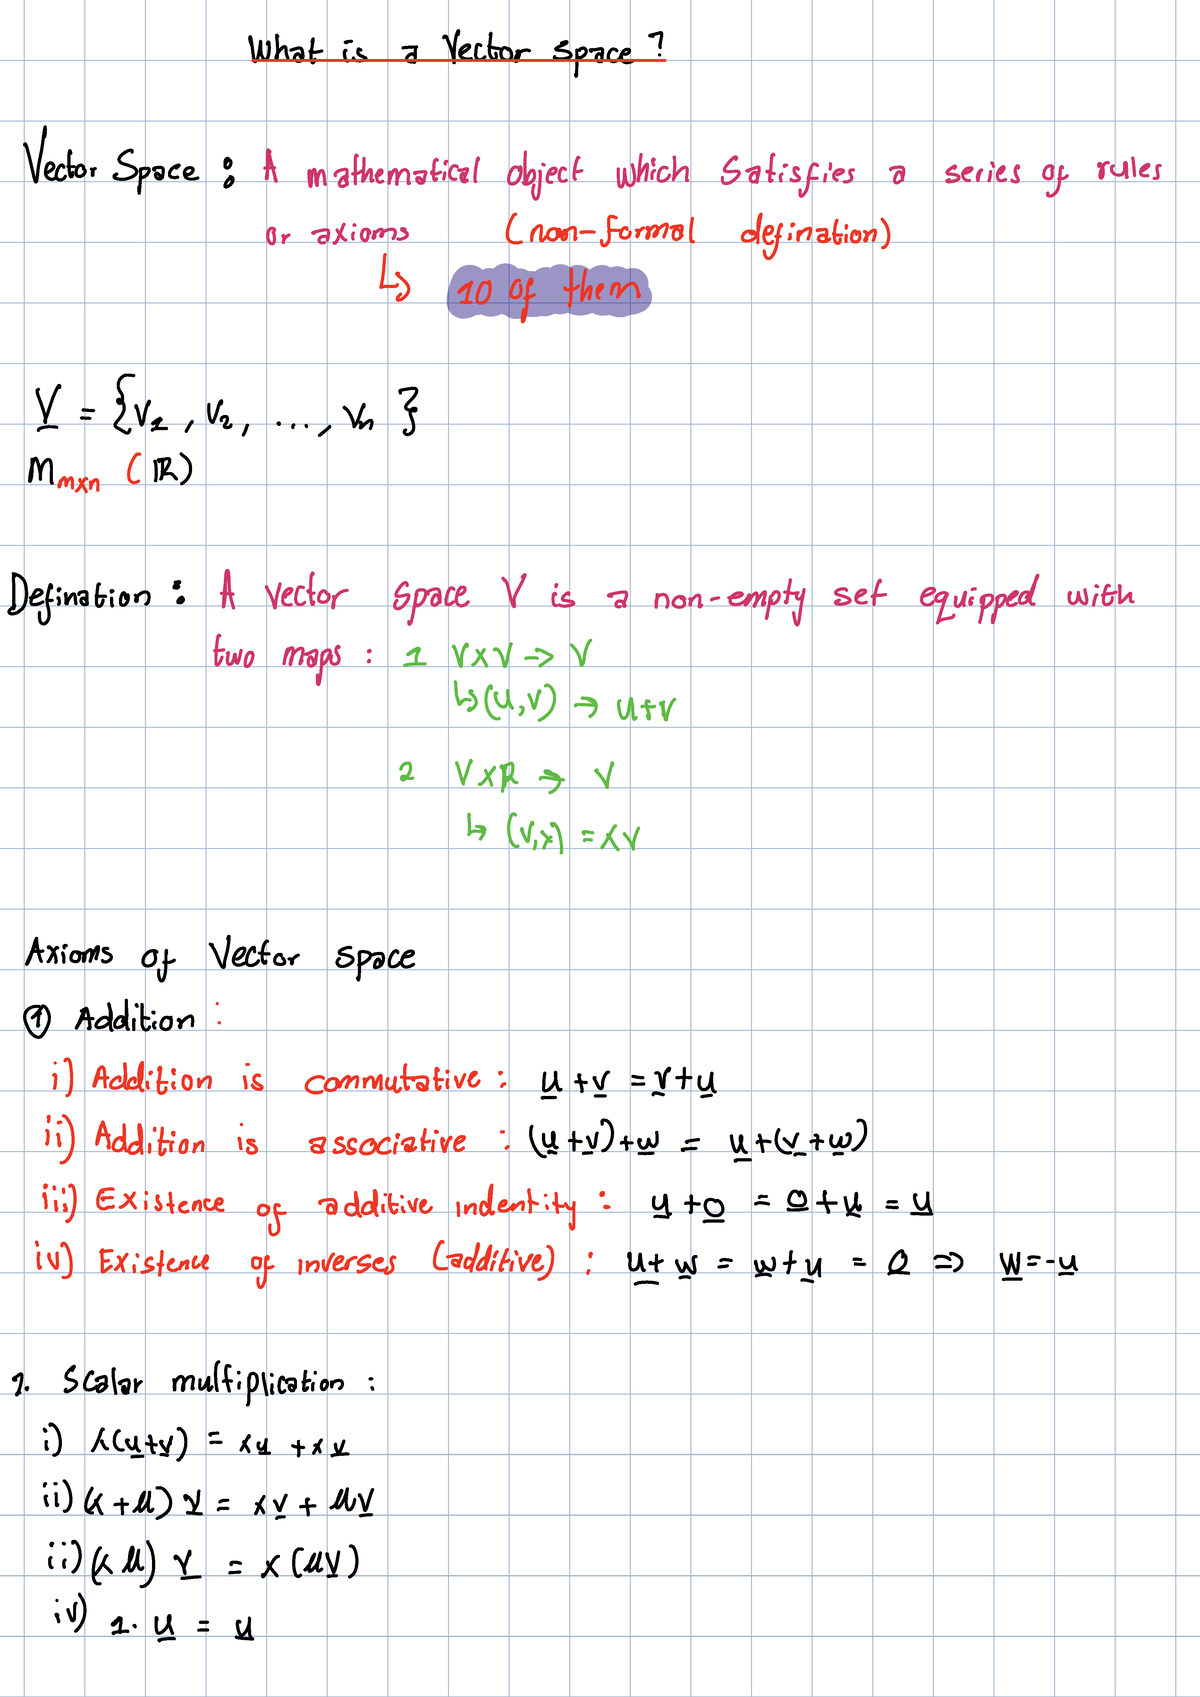 What is a Vector space ?
Vector Space : A mathematical object which Satisfies a series of rules
or axioms (non-formal defination)
↳ 10 of them
V = {v₁, v₂, ..., vₙ}
M mxn (ℝ)
Defination : A vector space V is a non-empty set equipped with
two maps : 1 V×V → V
↳ (u,v) → u+v
2 V×R → V
↳ (v,λ) = λv
Axioms of Vector space
① Addition :
i) Addition is commutative : u + v = v + u
ii) Addition is associative : (u + v) + w = u + (v + w)
iii) Existence of additive indentity : u + 0 = 0 + u = u
iv) Existence of inverses (additive) : u + w = w + u = 0 ⇒ w = -u
2. Scalar multiplication :
i) λ(u+v) = λu + λv
ii) (λ + μ) v = λv + μv
ii) (λ μ) v = λ (μv)
iv) 1. u = u